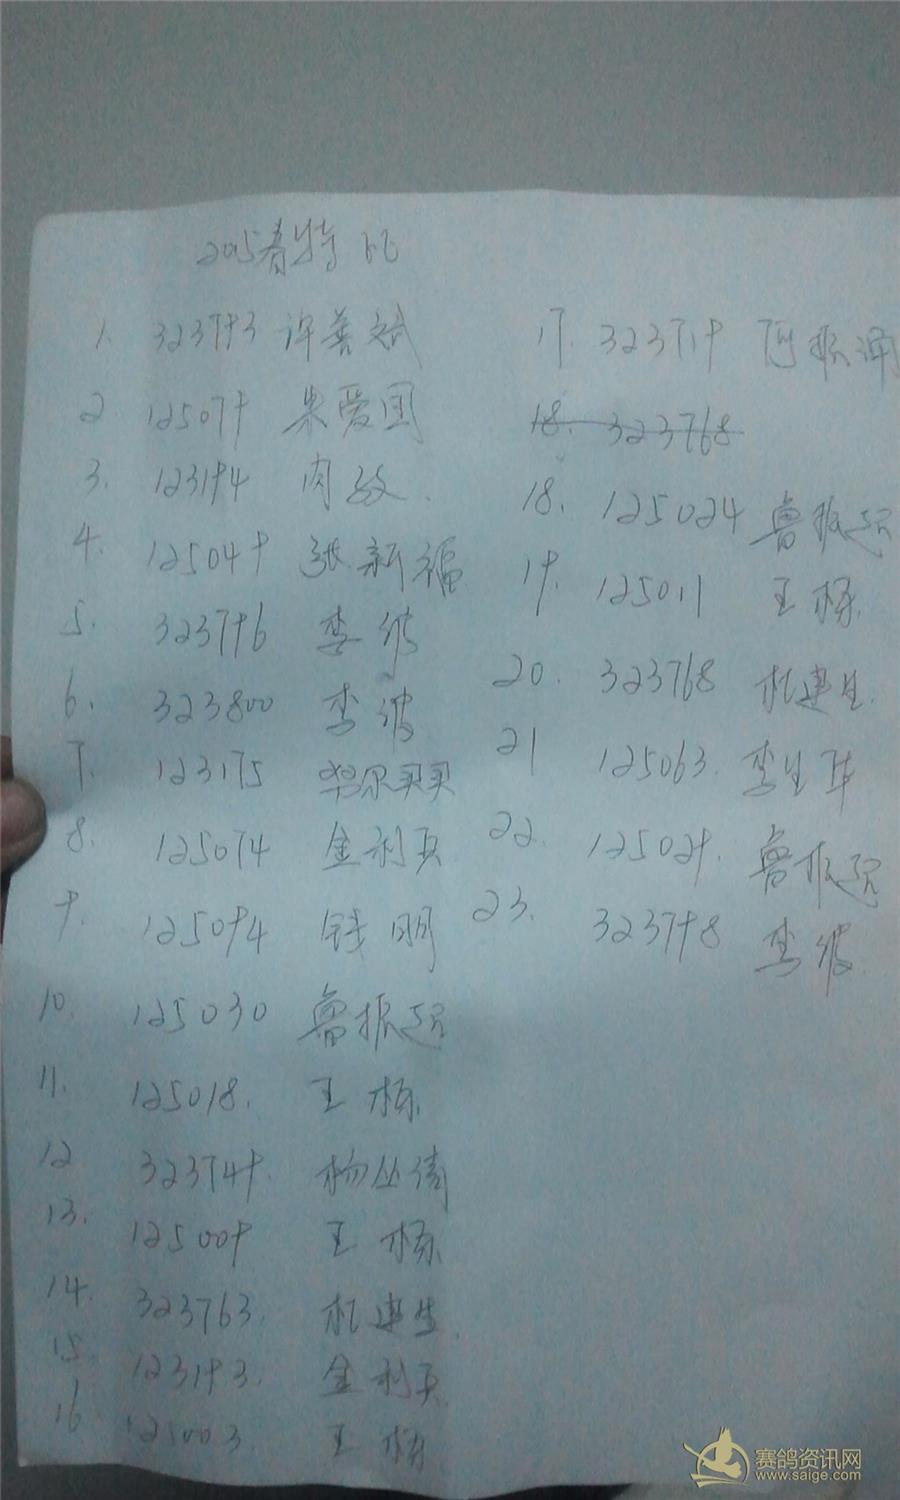 2015春特比
1. 323793 许善斌
2 125079 朱爱国
3. 123194 肉孜.
4. 125049 张新福
5. 323796 李波
6. 323800 李波
7. 123175 买买
8. 125074 金利兵
9. 125094 钱明
10. 125030 鲁振
11. 125018. 王栋
12 323749. 杨
13. 125009 王栋
14. 323763. 杜建生
15 123193. 金利兵
16 125003 王栋
17. 323719 振
18. 323768
18. 125024 鲁振
19. 125011 王栋
20. 323768 杜建生
21 125063. 李生
22. 125029. 鲁振
23. 323798 李波
赛鸽资讯网
www.saige.com